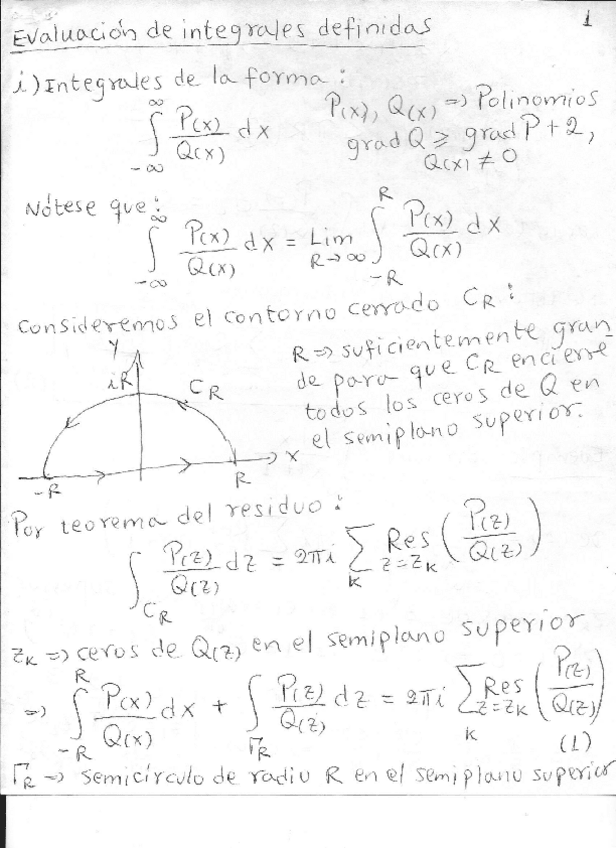 Evaluación de integrales definidas 1
i) Integrales de la forma:
∫_{-∞}^{∞} P(x)/Q(x) dx P(x), Q(x) => Polinomios
grad Q ⩾ grad P + 2,
Q(x) ≠ 0
Nótese que:
∫_{-∞}^{∞} P(x)/Q(x) dx = Lim_{R→∞} ∫_{-R}^{R} P(x)/Q(x) dx
Consideremos el contorno cerrado C_R:
R => suficientemente gran-
de para que C_R encierre
todos los ceros de Q en
el semiplano superior.
y
iR
C_R
x
-R R
Por teorema del residuo:
∫_{C_R} P(z)/Q(z) dz = 2πi ∑_k Res_{z=z_k} (P(z)/Q(z))
z_k => ceros de Q(z) en el semiplano superior
=> ∫_{-R}^{R} P(x)/Q(x) dx + ∫_{Γ_R} P(z)/Q(z) dz = 2πi ∑_k Res_{z=z_k} (P(z)/Q(z))
(1)
Γ_R => semicírculo de radio R en el semiplano superior